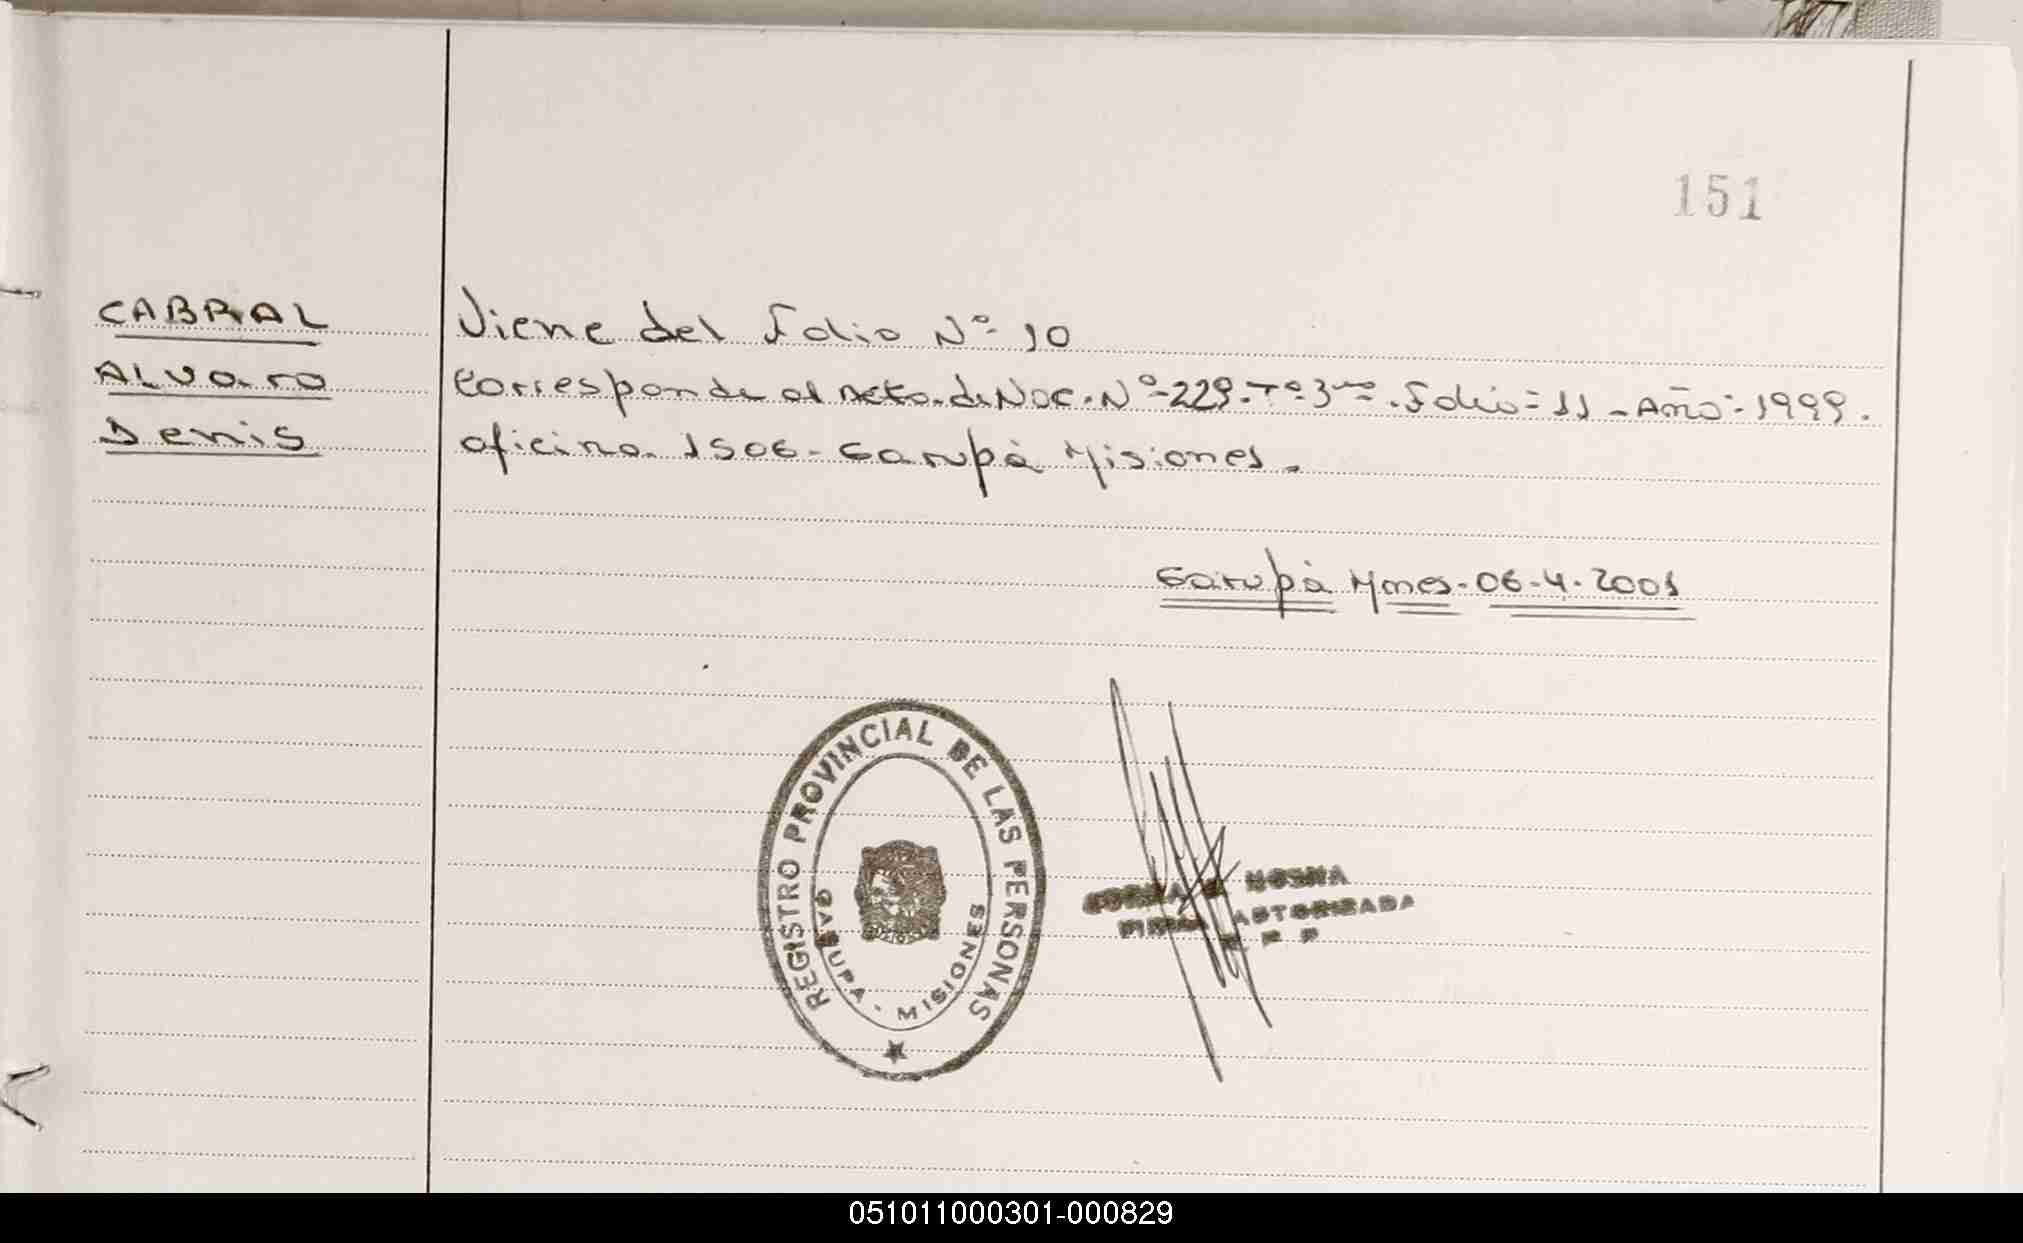 151
CABRAL
ALVaro
Denis
Viene del Folio Nº 10
Corresponde al Acta de Nac. Nº-229-Tº-3ro-. Folio=11-Año-1999.
oficina 1506- Garupà Misiones.
Garupà Mnes-06-4-2001
REGISTRO PROVINCIAL DE LAS PERSONAS
GARUPA - MISIONES
AUTORIZADA
R P P
051011000301-000829